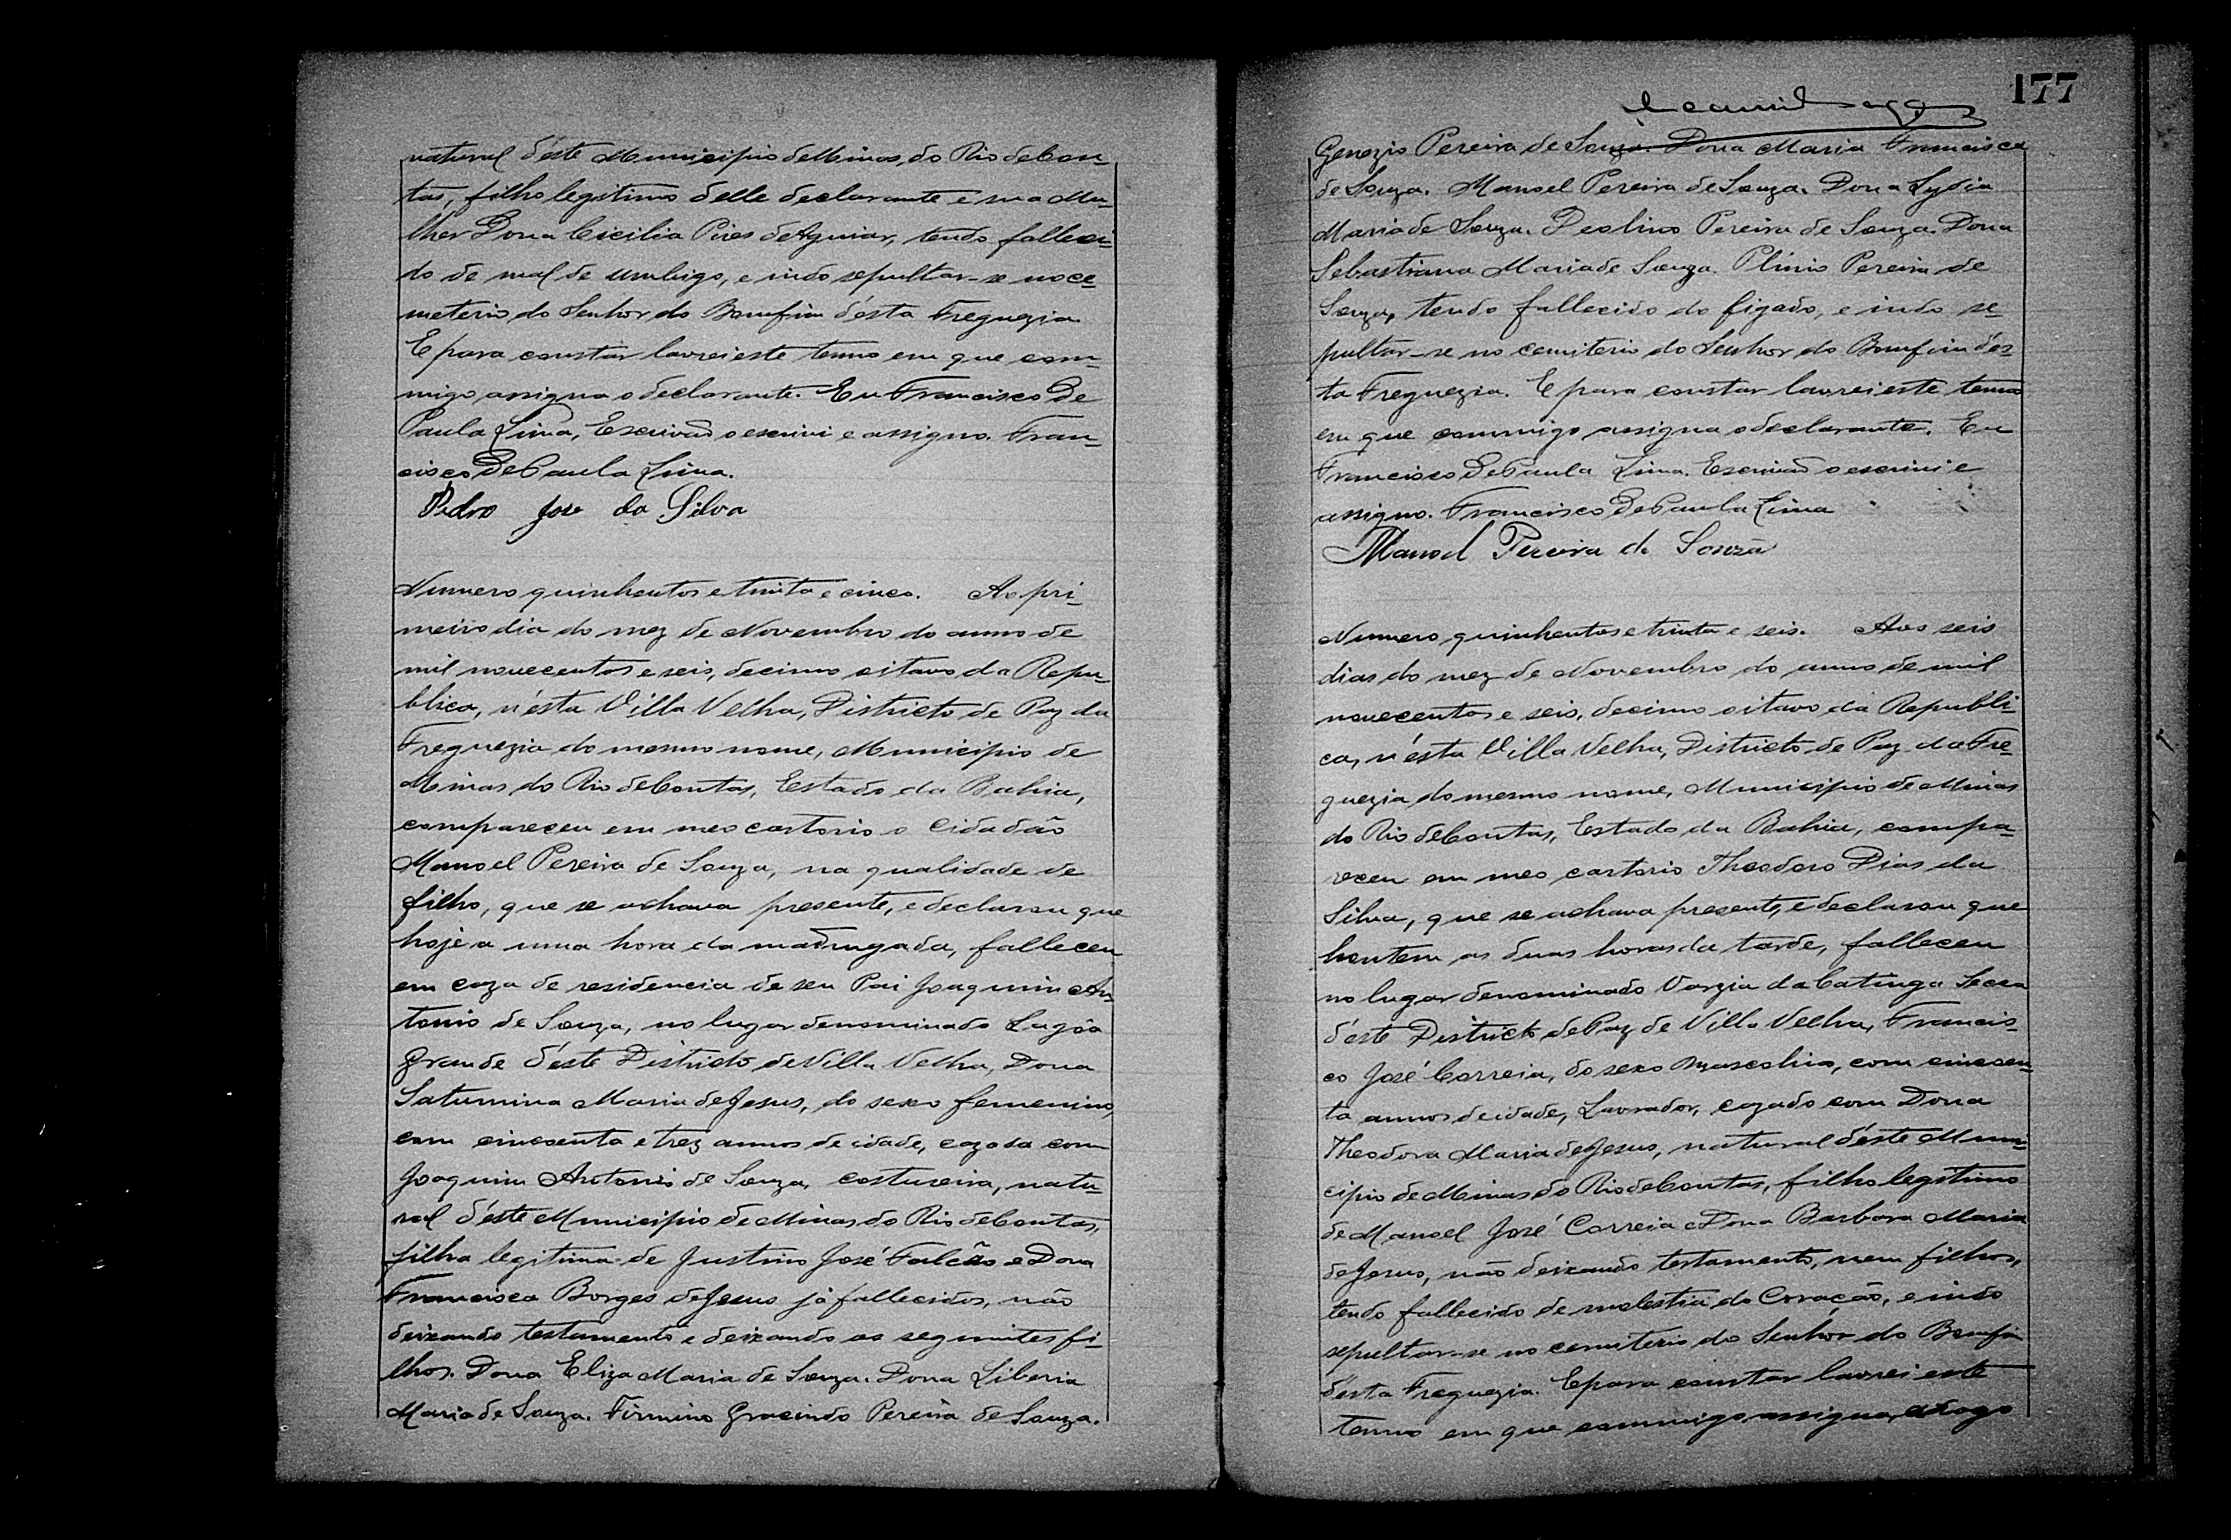 natural d'éste Municipio de Minas do Rio de Con-
tas, filho legitimo delle declarante e sua Mu-
lher Dona Cicilia Pires de Aguiar, tendo falleci-
do de mal de umbigo, e indo sepultar-se no ce-
meterio do Senhor do Bomfim d'ésta Freguezia
E para constar lavrei este termo em que com-
migo assigna o declarante. Eu Francisco De
Paula Lima, Escrivão o escrivi e assigno. Fran-
cisco De Paula Lima.
Pedro Jose da Silva
Numero quinhentos e trinta e cinco. Ao pri-
meiro dia do mez de Novembro do anno de
mil novecentos e seis, decimo oitavo da Repu-
blica, n'ésta Villa Velha, Districto de Paz da
Freguezia do mesmo nome, Municipio de
Minas do Rio de Contas, Estado da Bahia,
compareceu em meo cartorio o Cidadão
Manoel Pereira de Souza, na qualidade de
filho, que se achava presente, e declarou que
hoje a uma hora da madrugada, falleceu
em caza de residencia de seu Pai Joaquim An-
tonio de Souza, no lugar denominado Lagôa
Grande d'éste Districto de Villa Velha, Dona
Saturnina Maria de Jesus, do sexo femenino,
com cincoenta e trez annos de idade, cazada com
Joaquim Antonio de Souza, costureira, natu-
ral d'éste Municipio de Minas do Rio de Contas,
filha legitima de Justino José Falcão e Dona
Francisca Borges de Jesus já fallecidos, não
deixando testamento e deixando os seguintes fi-
lhos. Dona Eliza Maria de Souza. Dona Liberia
Maria de Souza. Firmino Gracindo Pereira de Souza.
177
Genezio Pereira de Souza. Dona Maria Francisca
de Souza. Manoel Pereira de Souza. Dona Lydia
Maria de Souza. Deolino Pereira de Souza. Dona
Sebastiana Maria de Souza. Plinio Pereira de
Souza, tendo fallecido do figado, e indo se-
pultar-se no cemiterio do Senhor do Bomfim d'és-
ta Freguezia. E para constar lavrei este termo
em que commigo assigna o declarante. Eu
Francisco De Paula Lima. Escrivão o escrivi e
assigno. Francisco De Paula Lima
Manoel Pereira de Souza
Numero quinhentos e trinta e seis. Aos seis
dias do mez de Novembro do anno de mil
novecentos e seis, decimo oitavo da Republi-
ca, n'ésta Villa Velha, Districto de Paz da Fre-
guezia do mesmo nome, Municipio de Minas
do Rio de Contas, Estado da Bahia, compa-
receu em meo cartorio Theodoro Dias da
Silva, que se achava presente, e declarou que
hontem as duas horas da tarde, falleceu
no lugar denominado Varzia da Catinga Secca
d'éste Districto de Paz de Villa Velha, Francis-
co José Correia, do sexo mascolino, com cincoen-
ta annos de idade, Lavrador, cazado com Dona
Theodora Maria de Jesus, natural d'éste Muni-
cipio de Minas do Rio de Contas, filho legitimo
de Manoel José Correia e Dona Barbora Maria
de Jesus, não deixando testamento, nem filhos,
tendo fallecido de molestia do Coração, e indo
sepultar-se no cemiterio do Senhor do Bomfim
d'ésta Freguezia. E para constar lavrei este
termo em que commigo assigna, a rogo